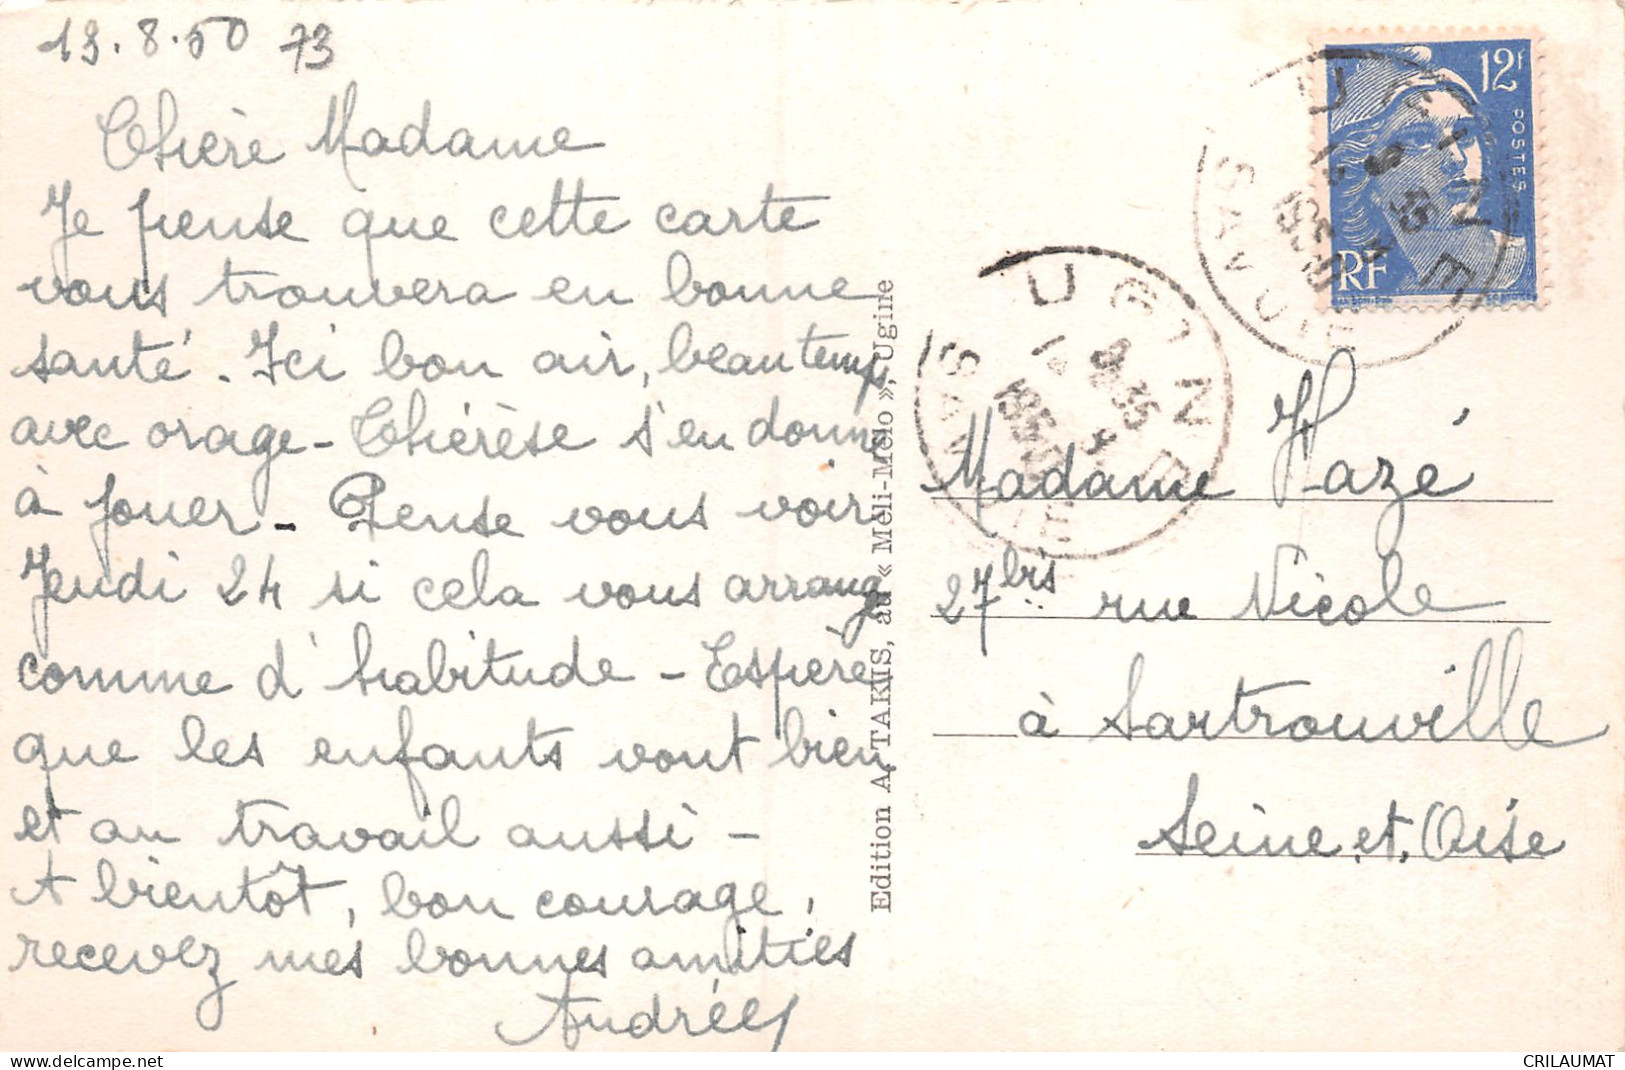 19.8.50 73
Chère Madame
Je pense que cette carte
vous trouvera en bonne
santé. Ici bon air, beau temps
avec orage - Thérèse s'en donne
à jouer - Pense vous voir
Jeudi 24 si cela vous arrange
comme d'habitude - Espère
que les enfants vont bien
et au travail aussi -
A bientôt, bon courage,
recevez mes bonnes amitiés
Andrée
Edition A. TAKIS, au « Méli-Mélo », Ugine
12F
POSTES
RF
UGINE
SAVOIE
UGINE
9 35
SAVOIE
Madame Hazé
27 bis rue Nicole
à Sartrouville
Seine.et.Oise
delcampe.net
CRILAUMAT